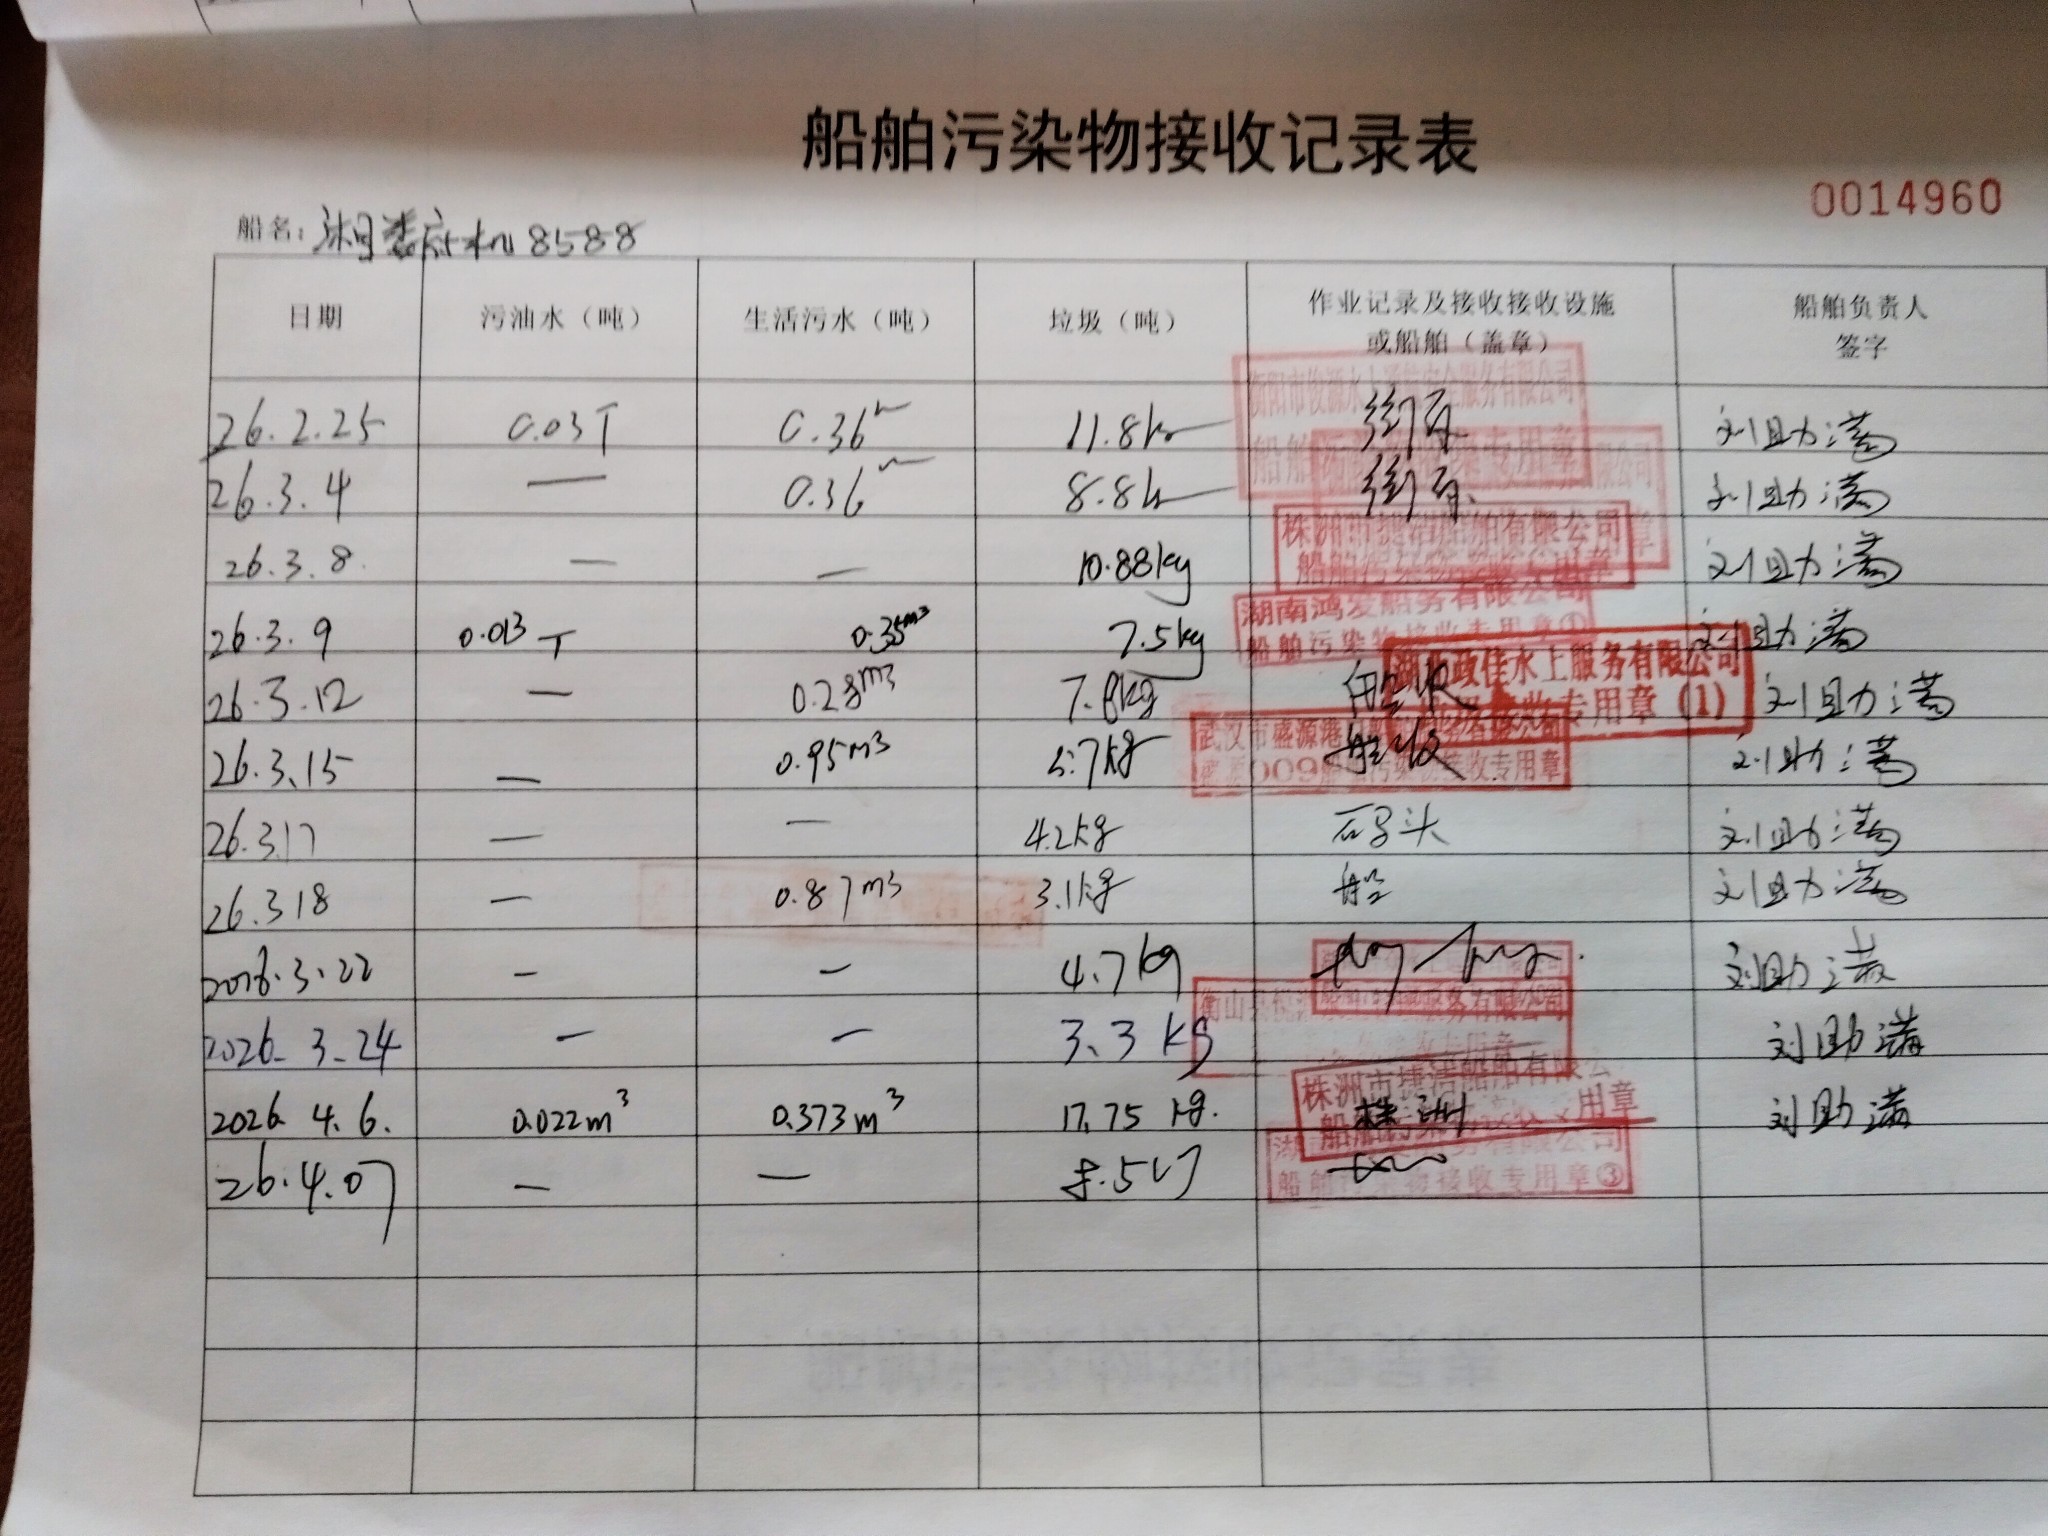 船舶污染物接收记录表
0014960
船名：湘娄底机8588
日期 污油水（吨） 生活污水（吨） 垃圾（吨） 作业记录及接收接收设施 船舶负责人
或船舶（盖章） 签字
26.2.25 0.03T 0.36 11.8k 衡阳市俊源水上 服务有限公司 刘助满
26.3.4 — 0.36 8.8k 有限公司 刘助满
26.3.8 — — 10.88kg 株洲市捷洁船舶有限公司 刘助满
船舶污染物接收专用章
26.3.9 0.013T 0.35m³ 7.5kg 湖南鸿发船务有限公司 刘助满
船舶污染物接收专用章①
26.3.12 — 0.28m³ 7.8kg 船收 湖北政佳水上服务有限公司 刘助满
接收专用章（1）
26.3.15 — 0.95m³ 5.7kg 船收 武汉市盛源港口船舶服务有限公司 刘助满
污染物接收专用章
26.3.17 — — 4.2kg 码头 刘助满
26.3.18 — 0.87m³ 3.1kg 船 刘助满
2026.3.22 — — 4.7kg 刘助满
2026.3.24 — — 3.3kg 衡山县 服务有限公司 刘助满
2026.4.6. 0.022m³ 0.373m³ 17.75kg. 株洲 株洲市捷洁船舶有限公 刘助满
用章
26.4.07 — — 有限公司
船舶污染物接收专用章③